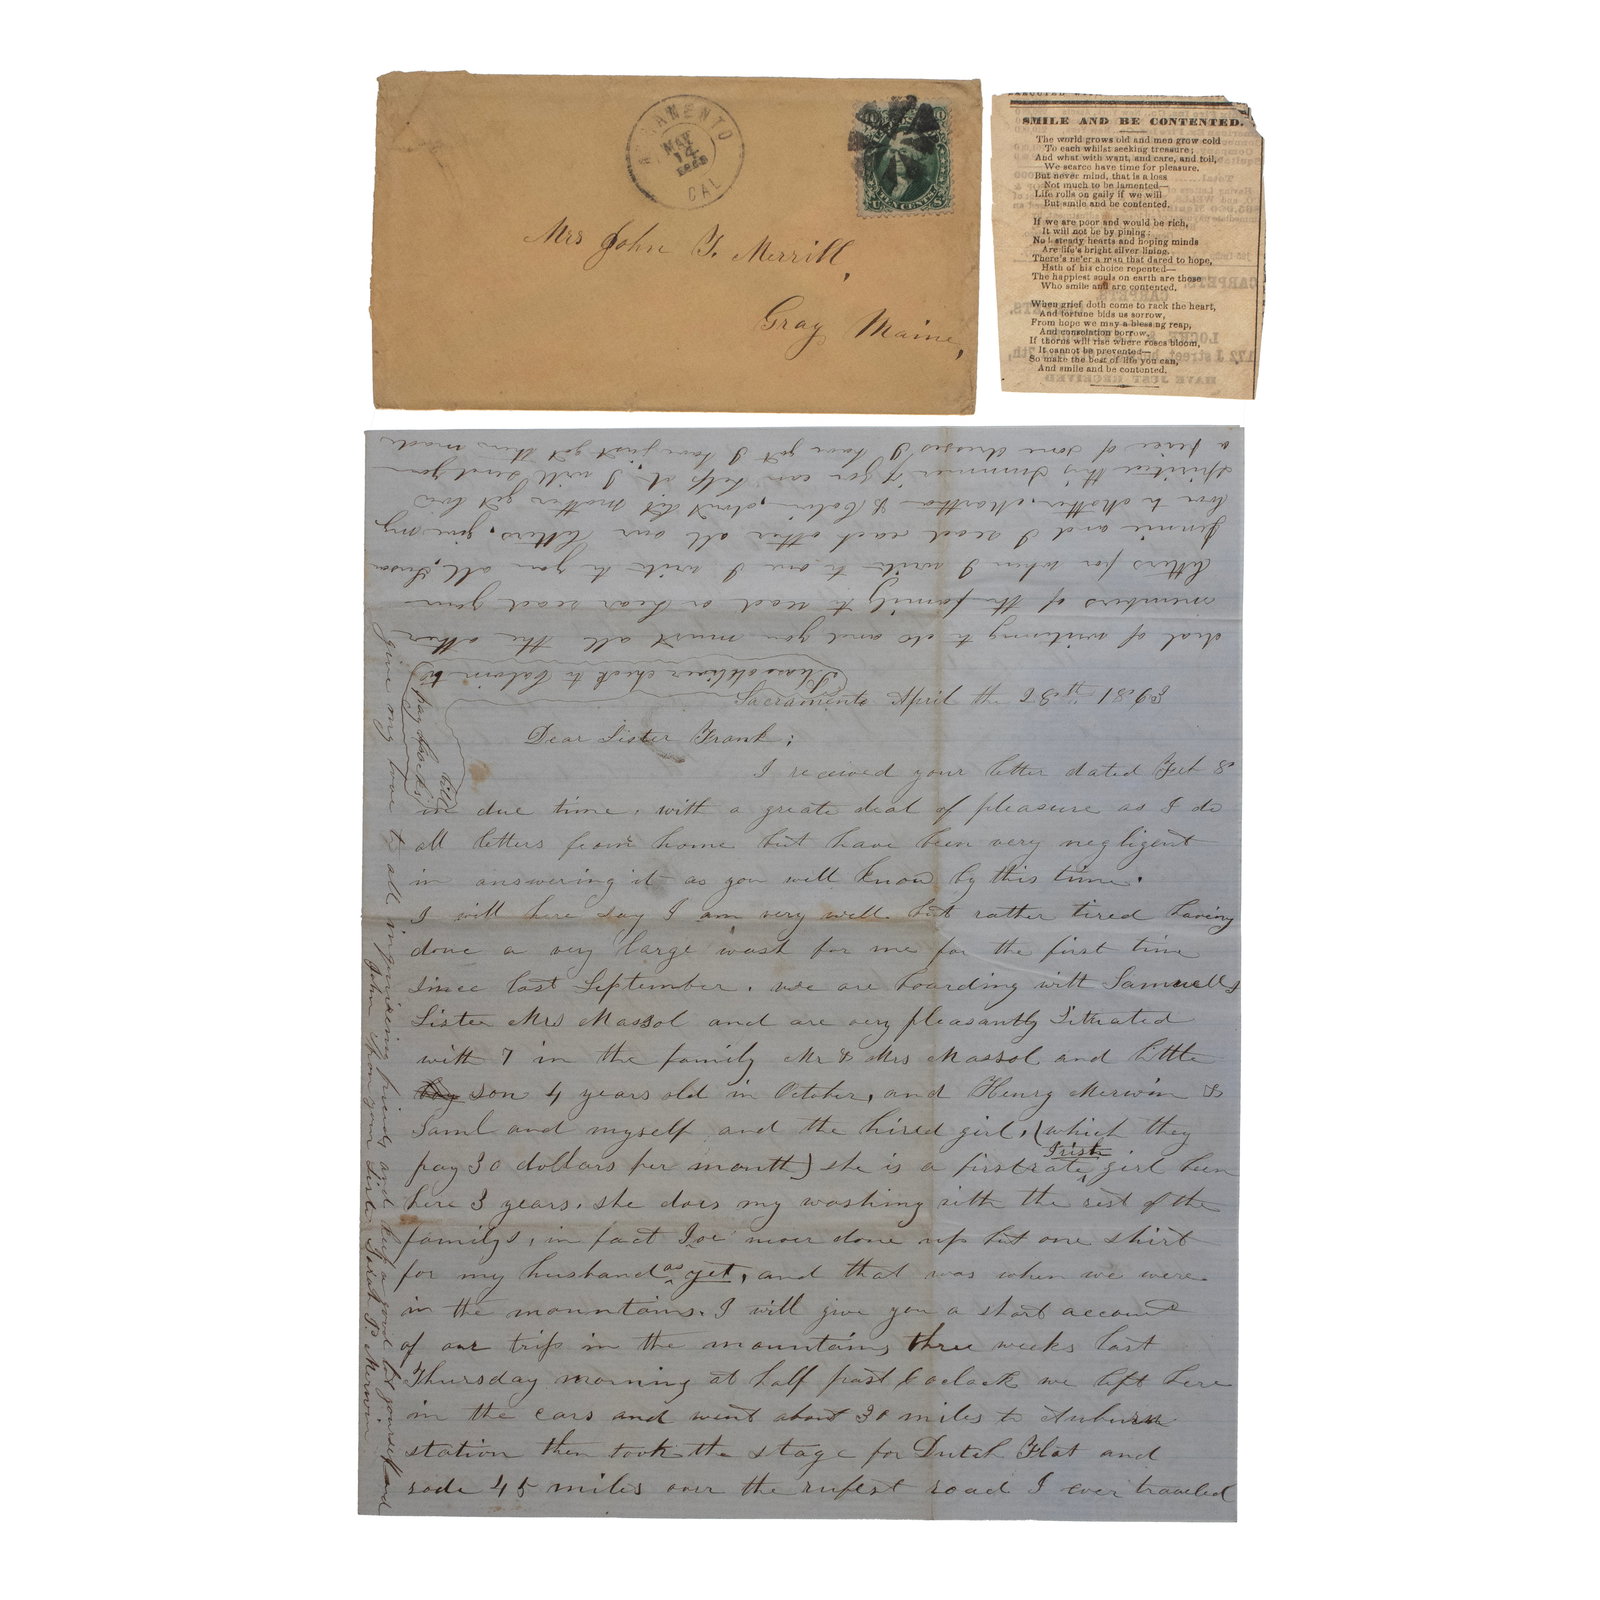 SACRAMENTO
MAY
14
1863
CAL
TEN CENTS
Mrs John F. Merrill,
Gray Maine,
SMILE AND BE CONTENTED.
The world grows old and men grow cold
To each whilst seeking treasure;
And what with want, and care, and toil,
We scarce have time for pleasure.
But never mind, that is a loss
Not much to be lamented—
Life rolls on gaily if we will
But smile and be contented.
If we are poor and would be rich,
It will not be by pining;
No! steady hearts and hoping minds
Are life's bright silver lining.
There's ne'er a man that dared to hope,
Hath of his choice repented—
The happiest souls on earth are these
Who smile and are contented.
When grief doth come to rack the heart,
And fortune bids us sorrow,
From hope we may a blessing reap,
And consolation borrow.
If thorns will rise where roses bloom,
It cannot be prevented—
So make the best of life you can,
And smile and be contented.
deal of writing to do and you must all the other
members of the family to read or hear read your
letters for when I write to one I write to you all, Susan
Jennie and I read each other all our letters, give my
love to Mother, Martha & Calvin, dont let mother get low
spirited this summer if you can help it, I will send you
a piece of some dresses I have got I have just got them made
Sacramento April the 26th 1863
Dear Sister Frank;
I received your letter dated Feb 8
in due time, with a greate deal of pleasure as I do
all letters from home but have been very negligent
in answering it as you well know by this time.
I will here say I am very well but rather tired having
done a very large wash for me for the first time
since last September. we are boarding with Samuells
Sister Mrs Massol and are very pleasantly situated
with 7 in the family Mr & Mrs Massol and little
boy son 4 years old in October, and Henry Merwin &
Saml and myself and the hired girl, (which they
pay 30 dollars per month) she is a first rate Irish girl been
here 3 years. she does my washing with the rest of the
familys, in fact Ive never done up but one shirt
for my husband as yet, and that was when we were
in the mountains. I will give you a short account
of our trip in the mountains three weeks last
Thursday morning at half past 6 oclock we left here
in the cars and went about 30 miles to Auburn
station then took the stage for Dutch Flat and
rode 45 miles over the rufest road I ever traveled
give my love to all inquireing friends and keep a good lot yourself and
John from your Sister Sarah P. Merwin